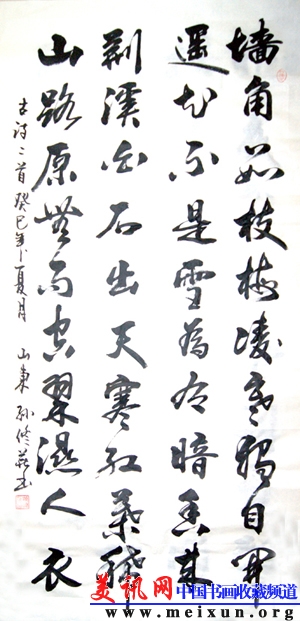 墙角数枝梅凌寒独自开
遥知不是雪為有暗香来
荆溪白石出天寒红葉稀
山路原無雨空翠濕人衣
古诗二首癸巳年夏月 山東 孙修书
美讯网
中国书画收藏频道
www.meixun.org